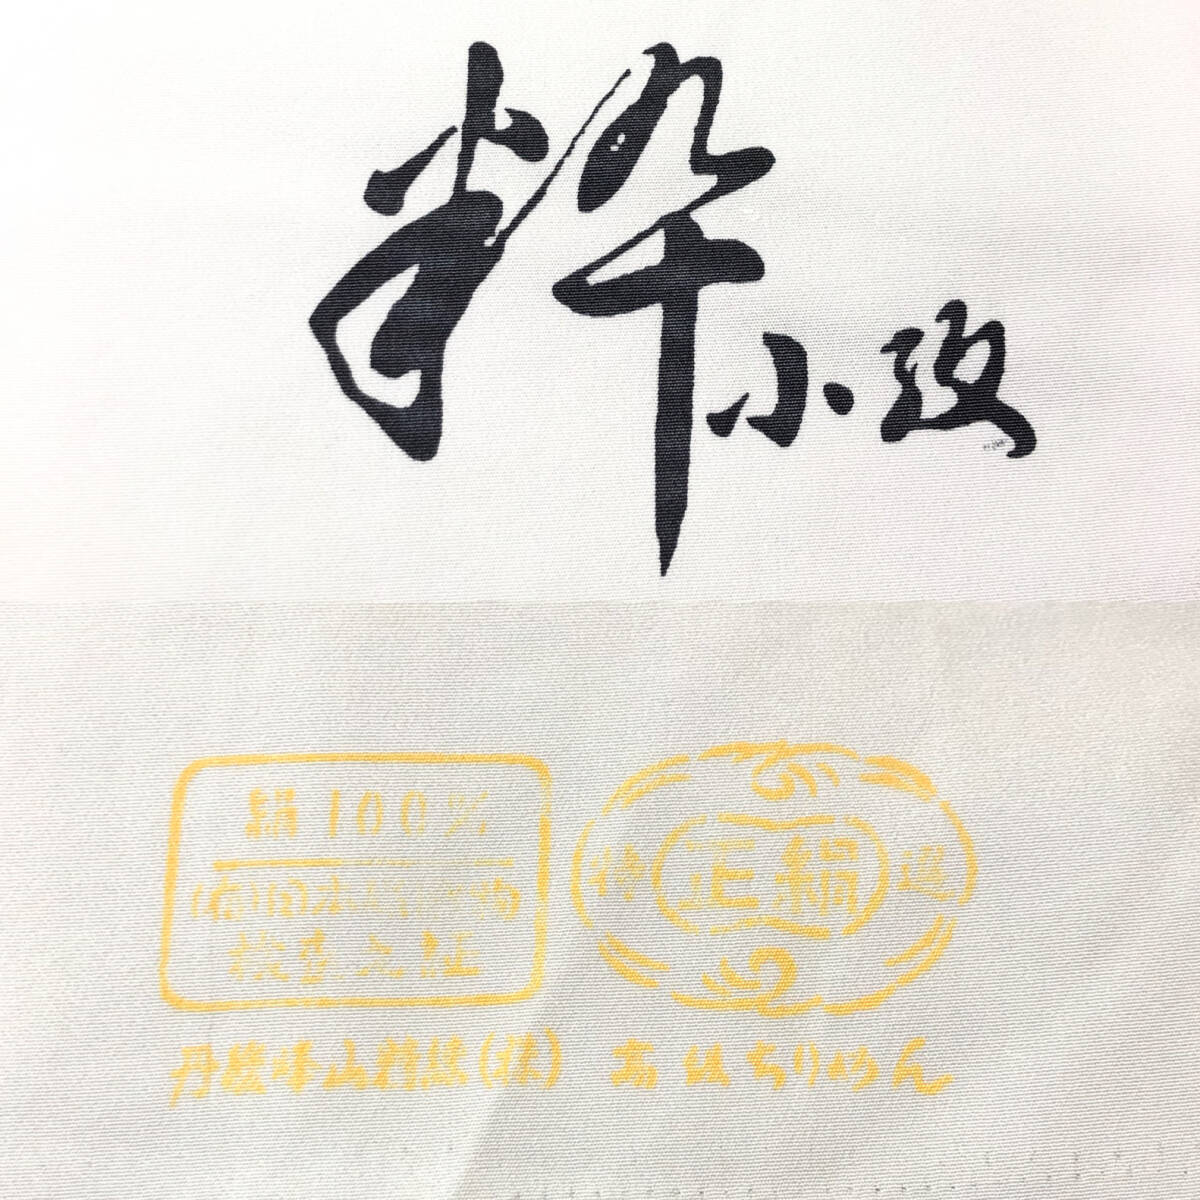 粋
小紋
絹100%
検査之証
特 正絹 選
丹後峰山精練(株) 高級ちりめん